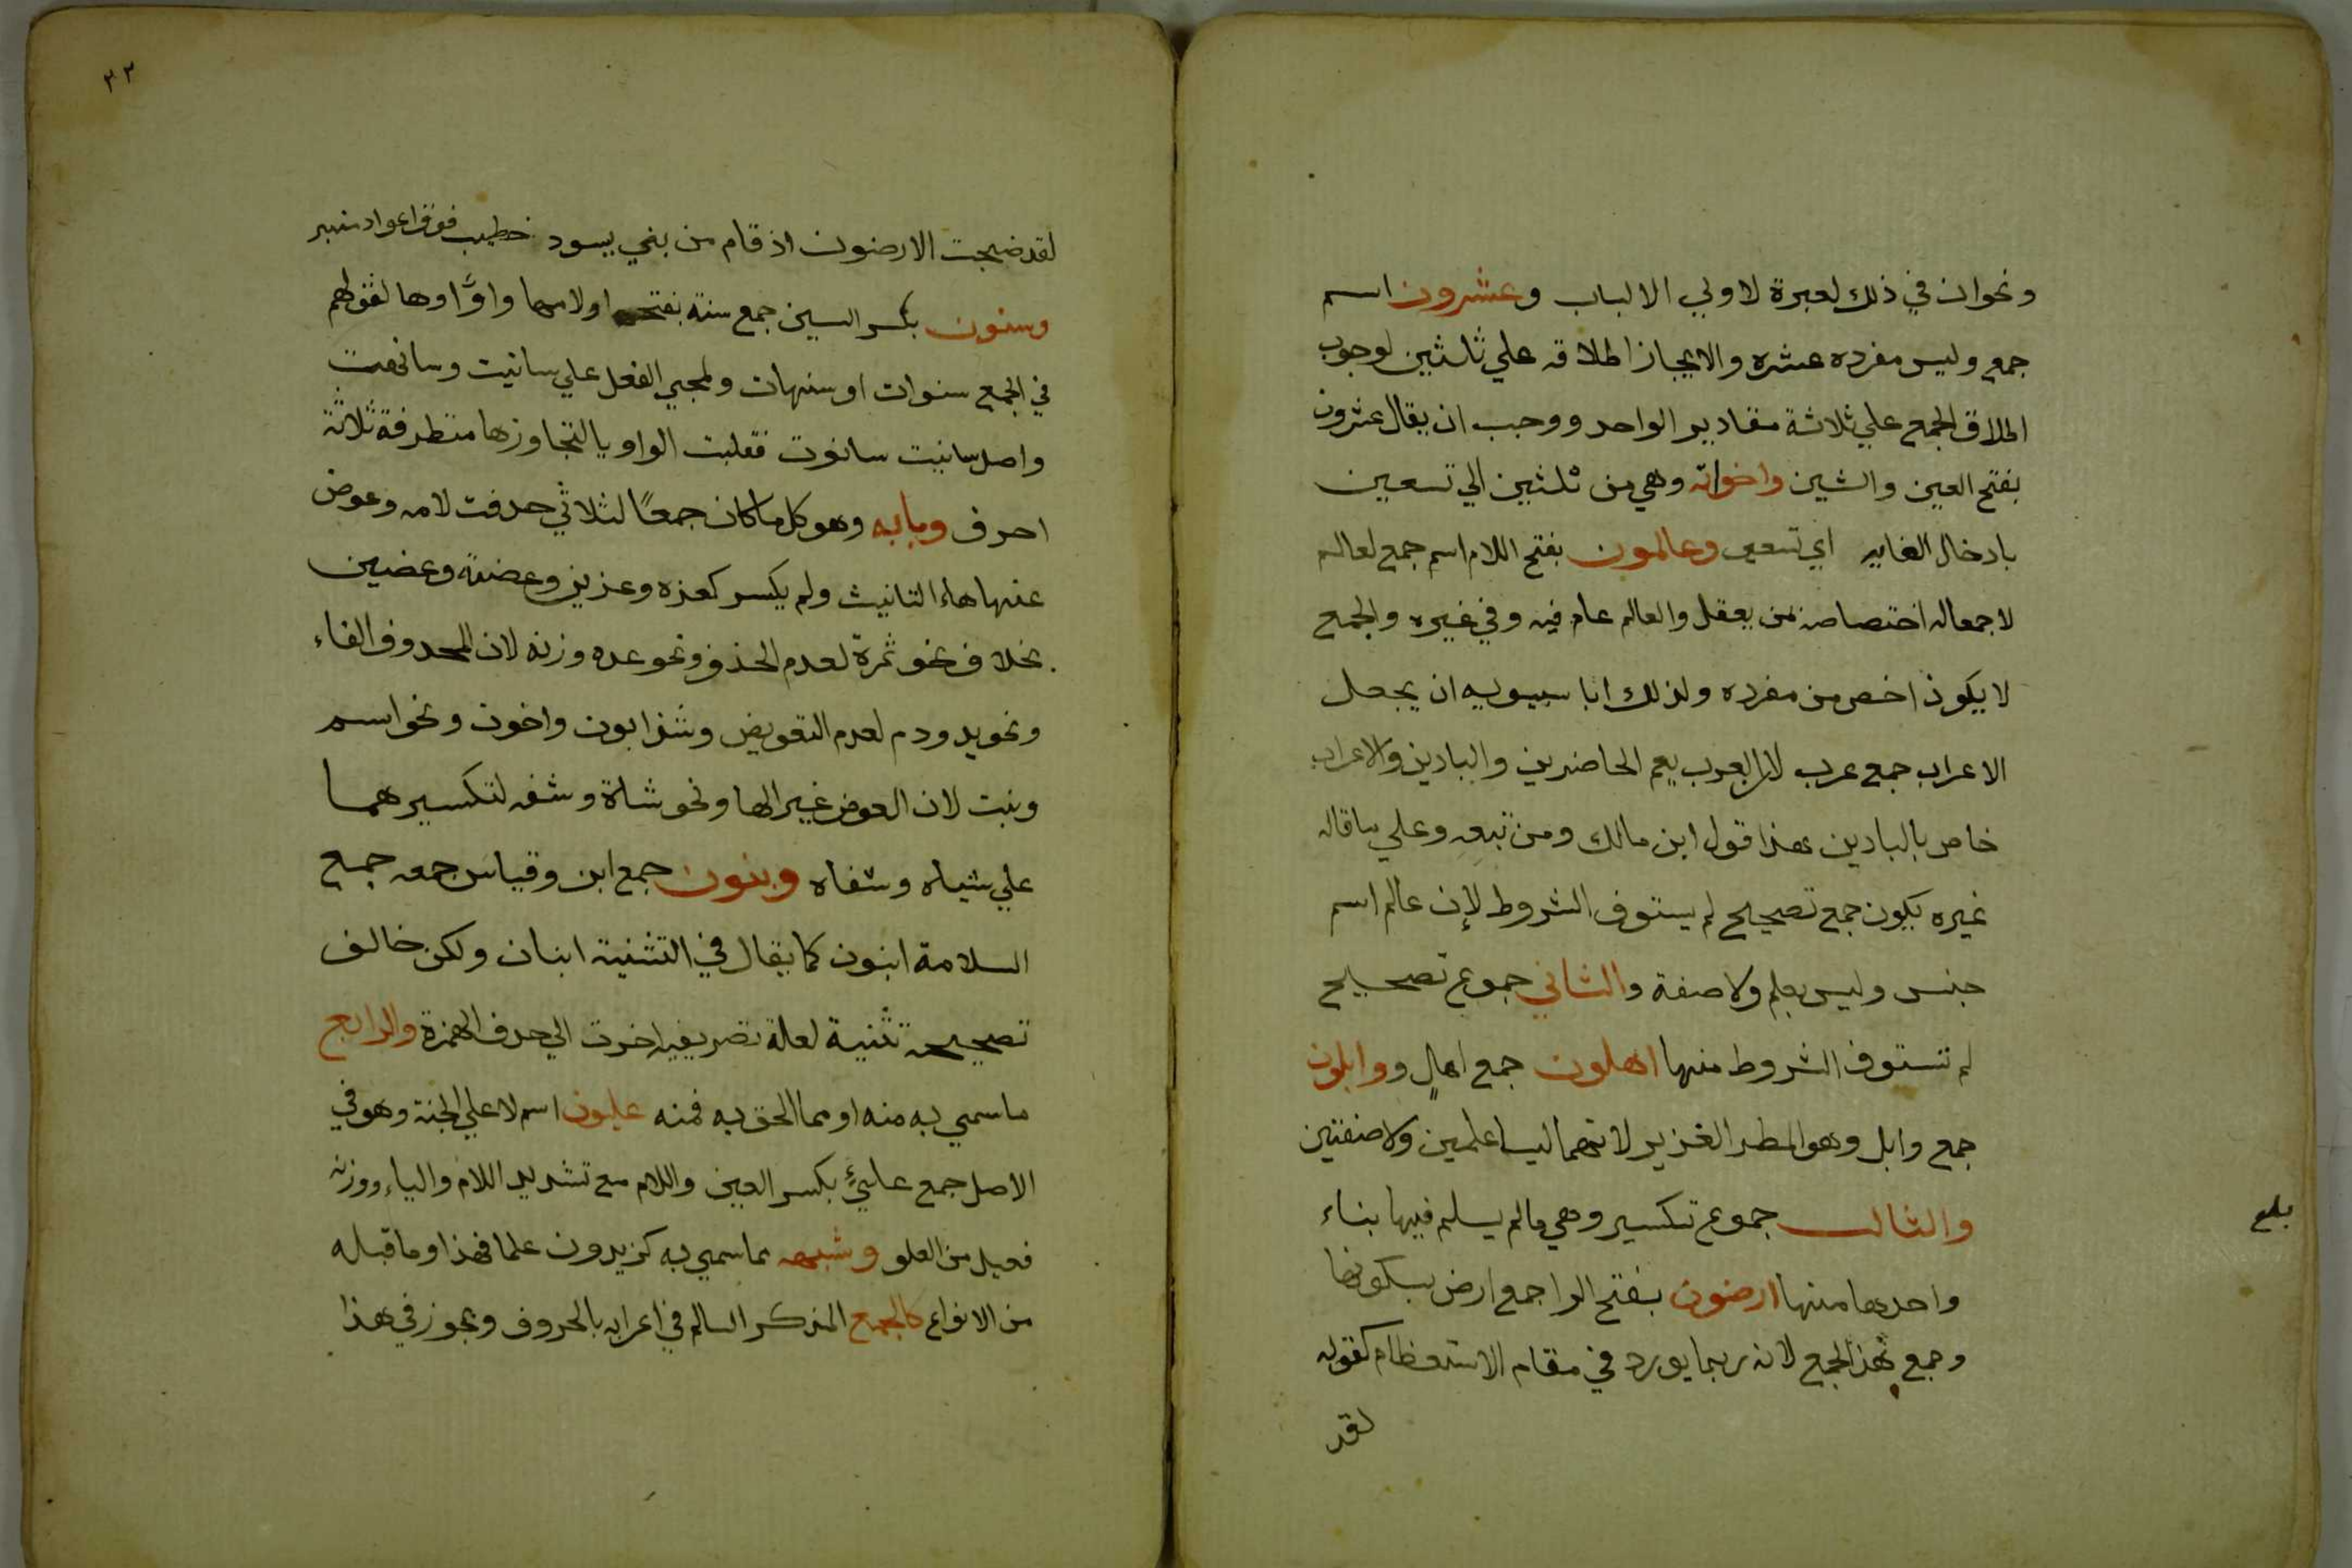 ونحو ان في ذلك لعبرة لاولي الالباب وعشرون اسم
جمع وليس مفرده عشره والا لجاز اطلاقه علي ثلثين لوجوب
اطلاق الجمع علي ثلاثة مقادير الواحد ووجب ان يقال عشرون
بفتح العين والشين واخواته وهي من ثلثين الي تسعين
بادخال الغايه اي تسعين وعالمون بفتح اللام اسم جمع لعالم
لا جمعاله اختصاصه بمن يعقل والعالم عام فيه وفي غيره والجمع
لا يكون اخص من مفرده ولذلك ابا سيبويه ان يجعل
الاعراب جمع عرب لان العرب يعم الحاضرين والبادين والاعراب
خاص بالبادين هذا قول ابن مالك ومن تبعه وعلي ما قاله
غيره يكون جمع تصحيح لم يستوف الشروط لان عالم اسم
جنس وليس بعلم ولا صفة والثاني جموع تصحيح
لم تستوف الشروط منها اهلون جمع اهلٍ و وابلون
جمع وابل وهو المطر الغزير لانهما ليسا علمين ولا صفتين
والثالث جموع تكسير وهي ما لم يسلم فيها بناء
بلغ
واحدها منها ارضون بفتح الرا جمع ارض بسكونها
وجمع بهذا الجمع لانه ربما يورد في مقام الاستعظام كقوله
لقد
٢٢
لقد ضجت الارضون اذ قام من بني يسود خطيب فوق اعواد منبر
وسنون بكسر السين جمع سنة بفتح اولامها واو او ها لقولهم
في الجمع سنوات او سنهات ولمجي الفعل علي سانيت وسانهت
واصل سانيت سانوت فقلبت الواو يا لتجاوزها متطرفة ثلاثة
احرف وبابه وهو كل ما كان جمعًا لثلاثي حدفت لامه وعوض
عنها هاء التانيث ولم يكسر كعزه وعزين وعضة وعضين
بخلاف نحو ثمرة لعدم الحذف ونحو عده وزنه لان المحدوف الفاء
ونحو يد ودم لعدم التعويض وشذ ابون واخون ونحو اسم
وبنت لان العوض غير الها ونحو شاة وشفه لتكسيرهما
علي شياه وشفاه وبنون جمع ابن وقياس جمعه جمع
السلامة ابنون كما يقال في التثنية ابنان ولكن خالف
تصحيحه تثنية لعلة تصريفيه اخرت الي حدف الهمزة والرابع
ما سمي به منه او مما الحق به فمنه عليون اسم لاعلي الجنة وهو في
الاصل جمع عليٍّ بكسر العين واللام مع تشديد اللام والياء ووزنه
فعيل من العلو وشبهه مما سمي به كزيدون علما فهذا وما قبله
من الانواع كالجمع المذكر السالم في اعرابه بالحروف ويجوز في هذا